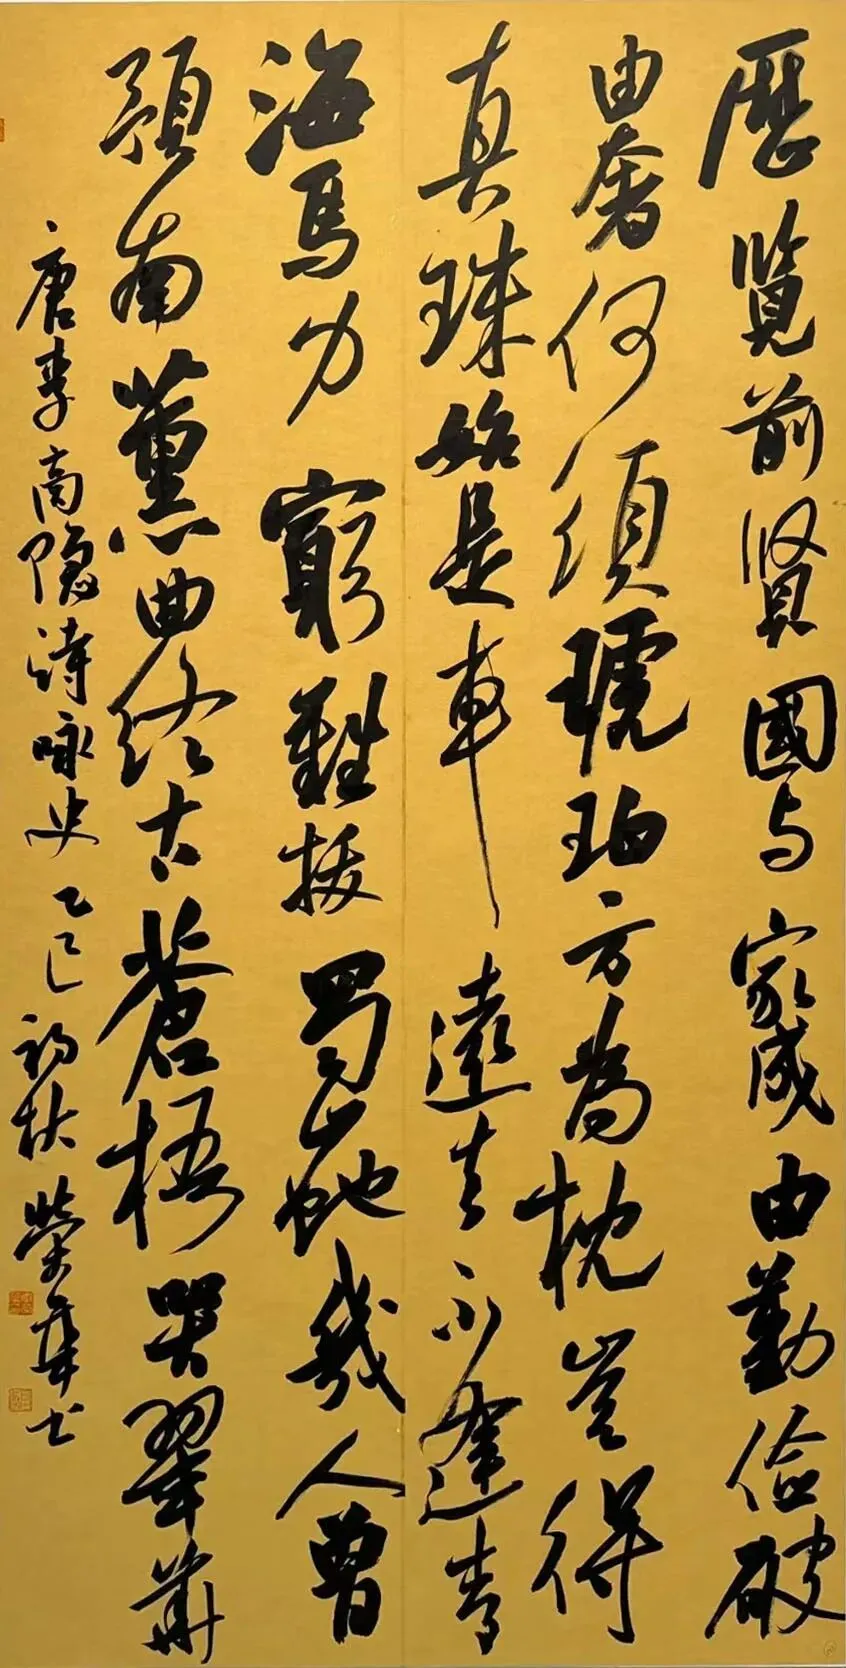 歷覽前賢國与家成由勤俭破
由奢何須琥珀方為枕豈得
真珠始是車遠去不逢青
海馬力窮難拔蜀山虵幾人曾
預南薰曲終古蒼梧哭翠華
唐李商隐詩咏史乙巳初秋榮书